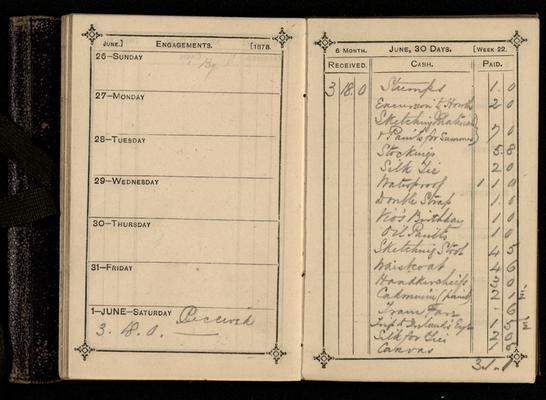 JUNE.] ENGAGEMENTS. [1878.
26—SUNDAY
27—MONDAY
28—TUESDAY
29—WEDNESDAY
30—THURSDAY
31—FRIDAY
1—JUNE—SATURDAY Received
3. 18. 0.
6 MONTH. JUNE, 30 DAYS. [WEEK 22.
RECEIVED. CASH. PAID.
3 18 0 Stamps 1. 0
Excursion to Howth 2 0
Sketching Materials
& Paints for Summer 7 0
Stockings 5. 8
Silk Tie 2 0
Waterproof 1 1 0
Strap 1. 0
Vio's Birthday 1 0
Oil Paints 1 0
Sketching Stool 4 5
Waistcoat 4 6
Handkerchiefs 3 0
Cadmium (paint) 2 1
Tram Far . 6
Silk for Ties 2 0
Canvas 1